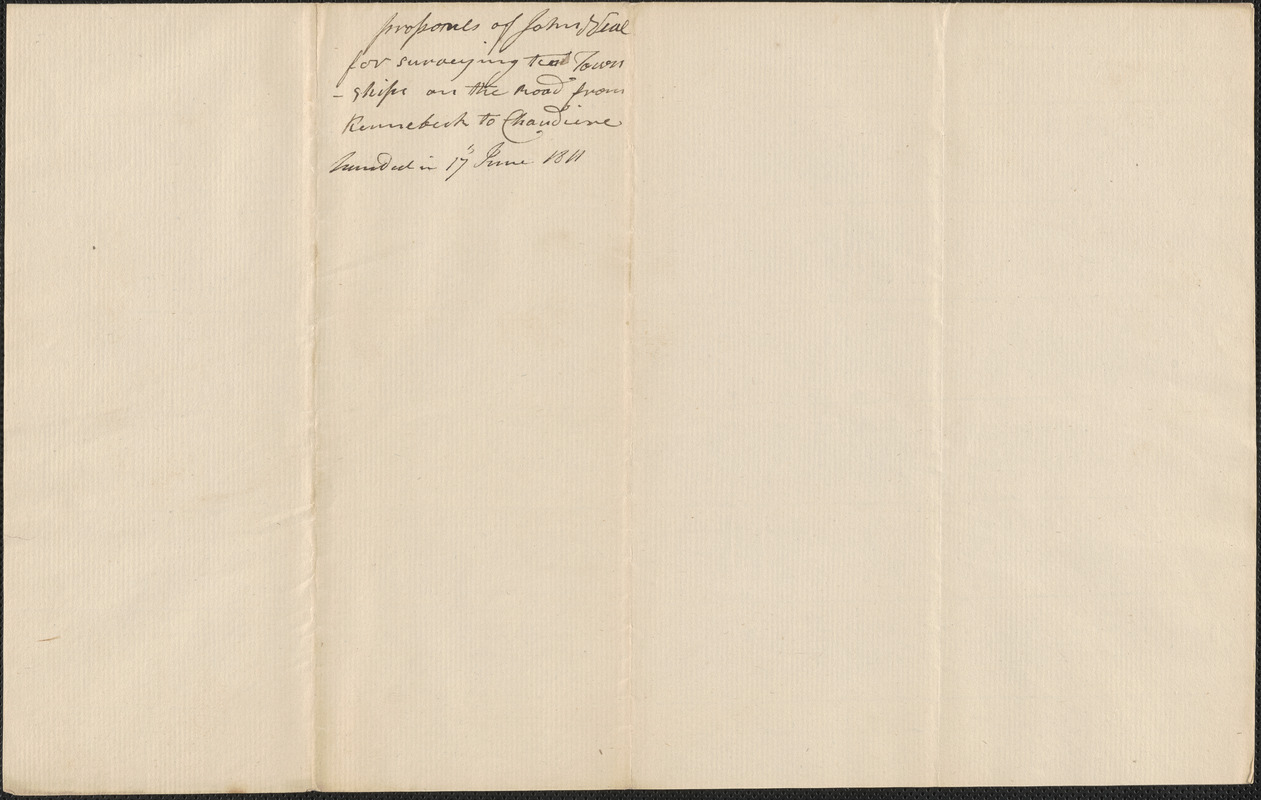 proposals of John Neal
for surveying ten Town
-ships on the road from
Kennebeck to Chaudiere
handed in 17th June 1811